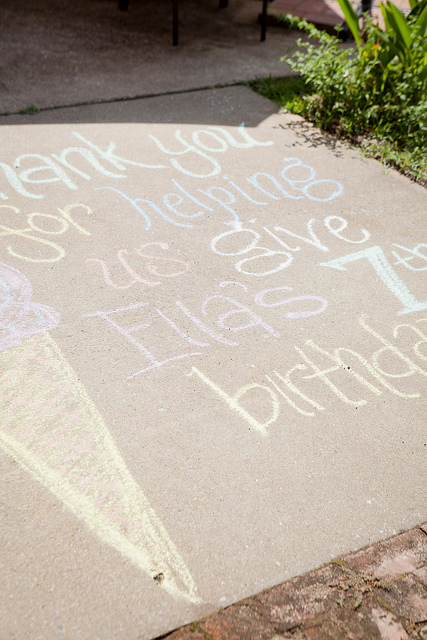 Thank you
for helping
us give
Ella's 7th
birthday